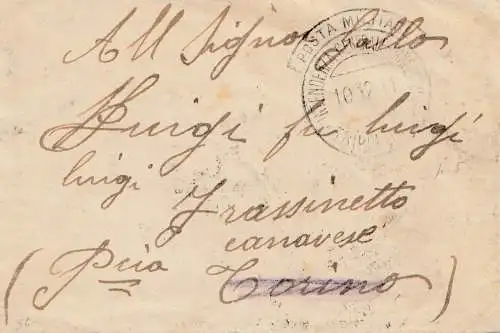 All Signor Gallo
POSTA MILITARE
10 12
Luigi fu luigi
luigi
Frassinetto
canavese
(Pcia Torino)